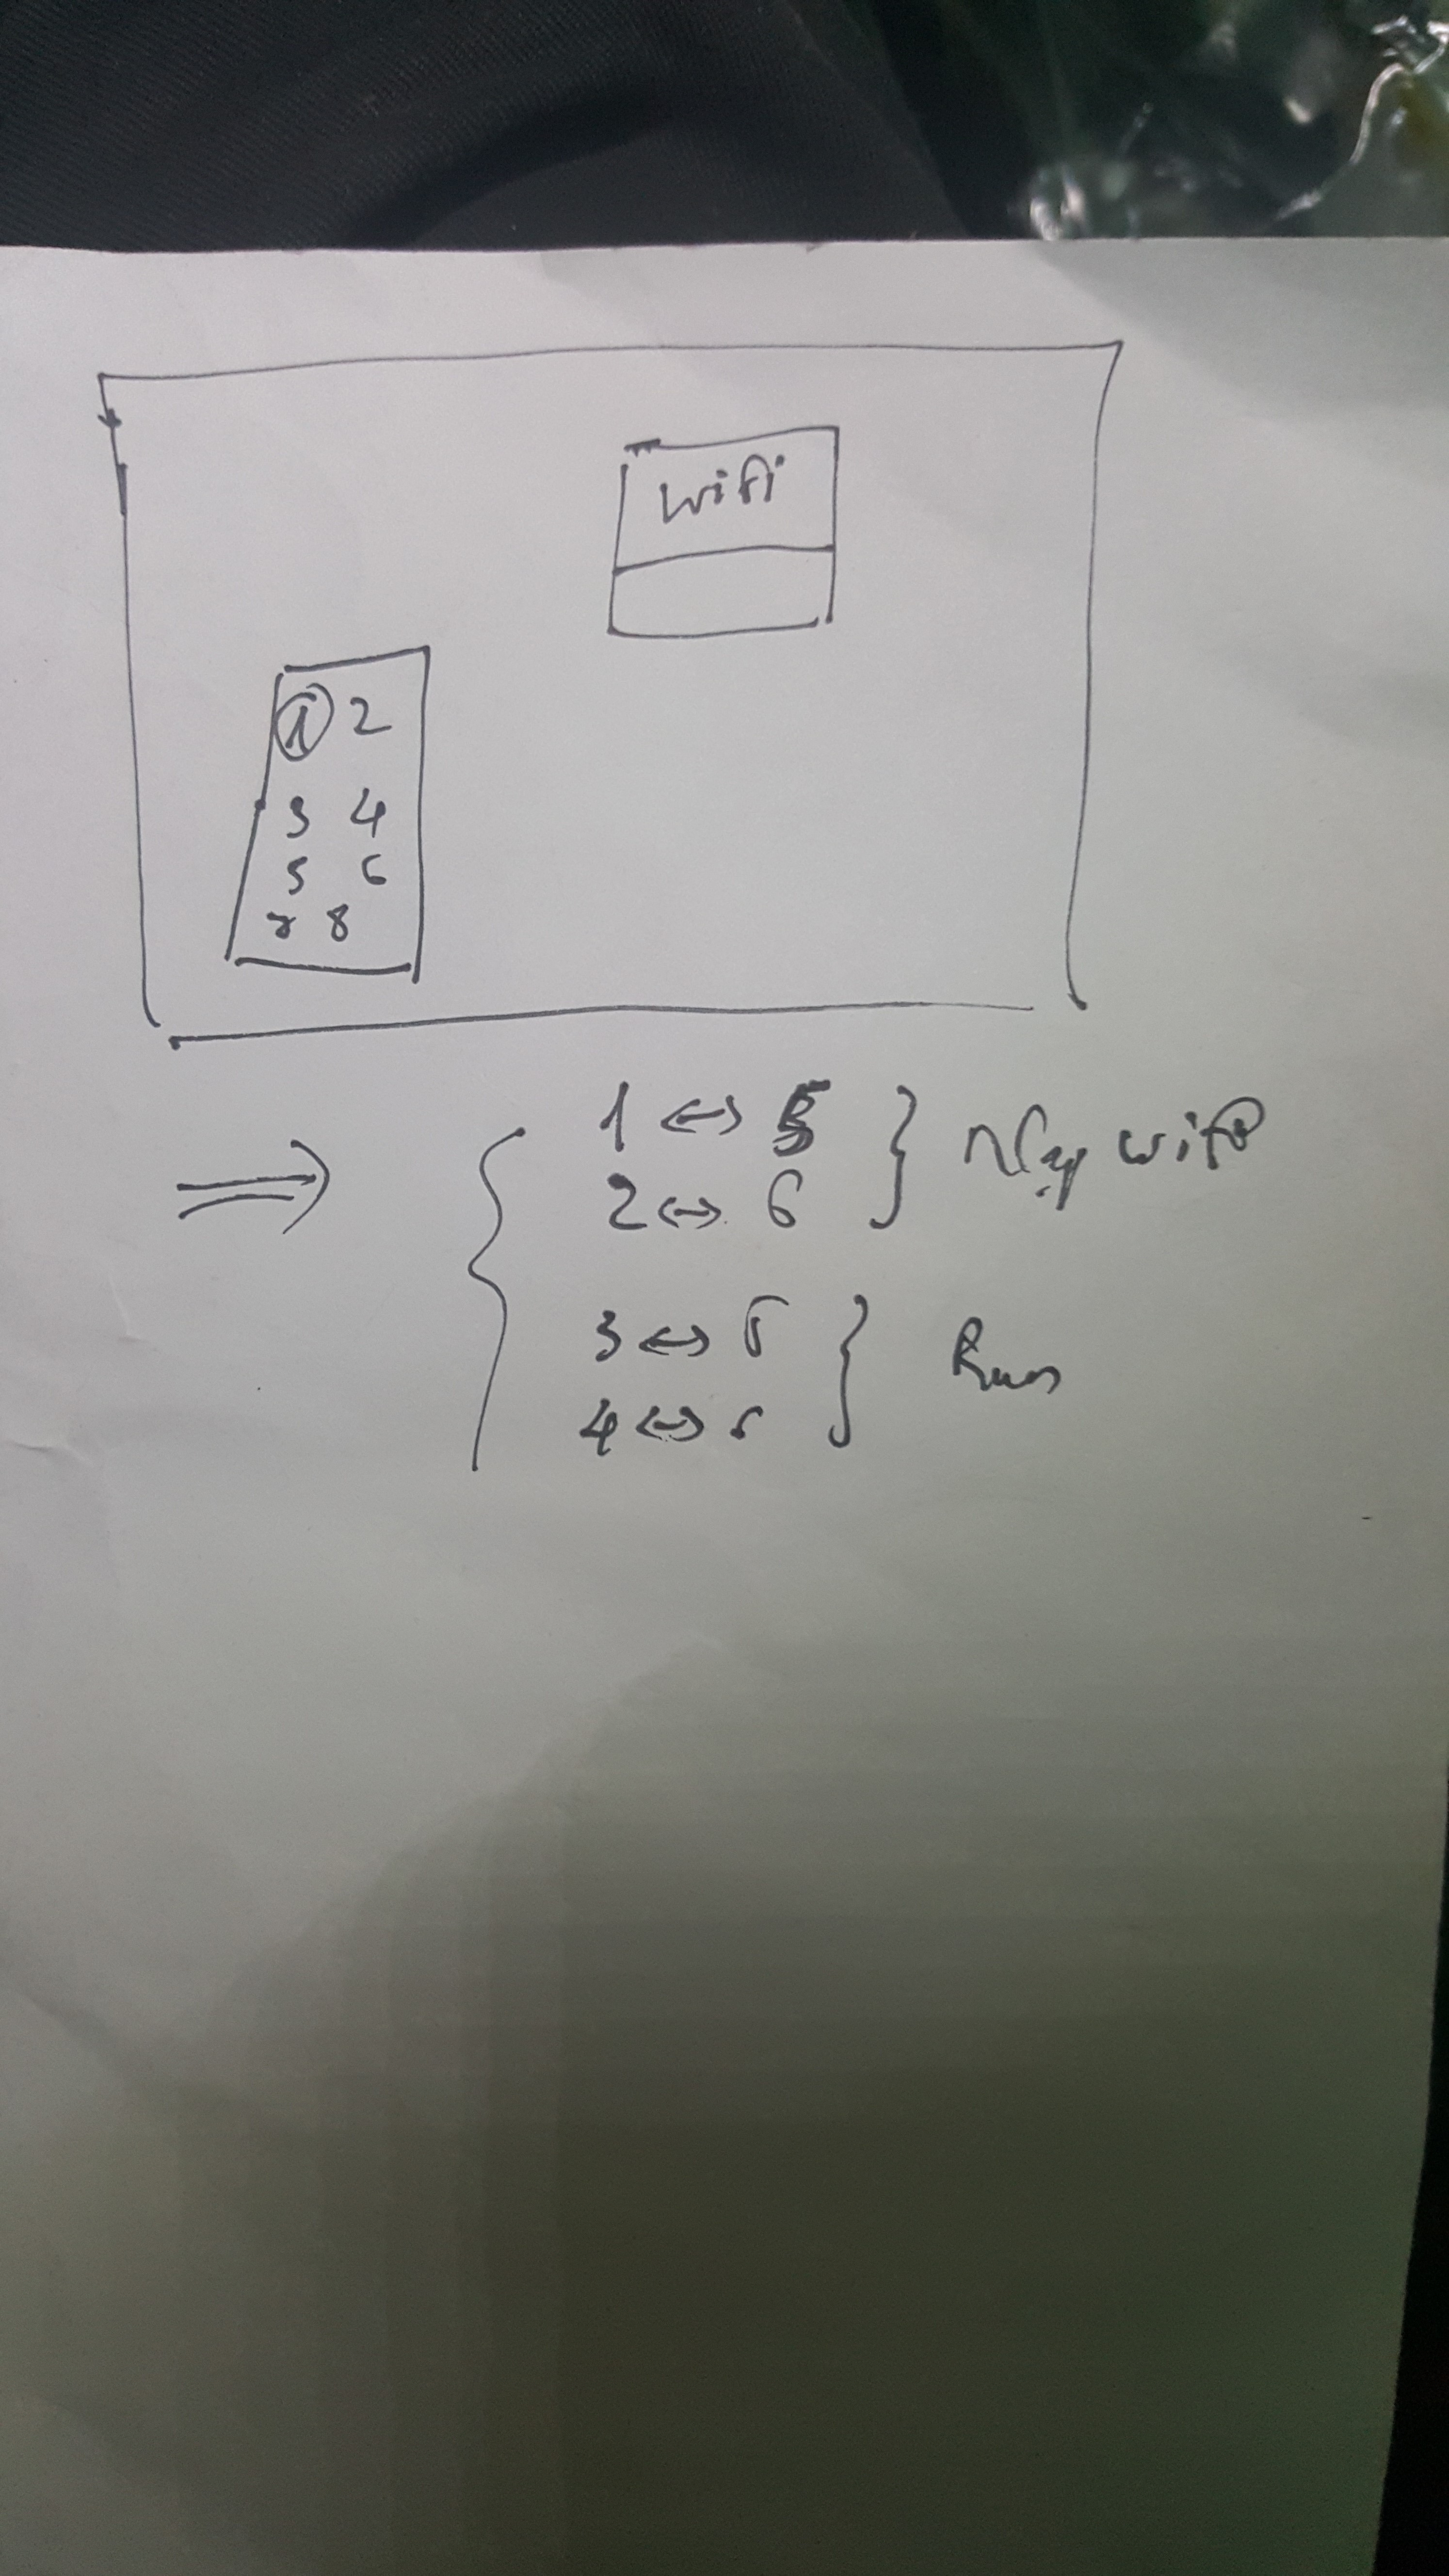 wifi
1 2
3 4
5 6
7 8
⇒
1 ↔ 5
2 ↔ 6
Nạp wifi
3 ↔
4 ↔
Run